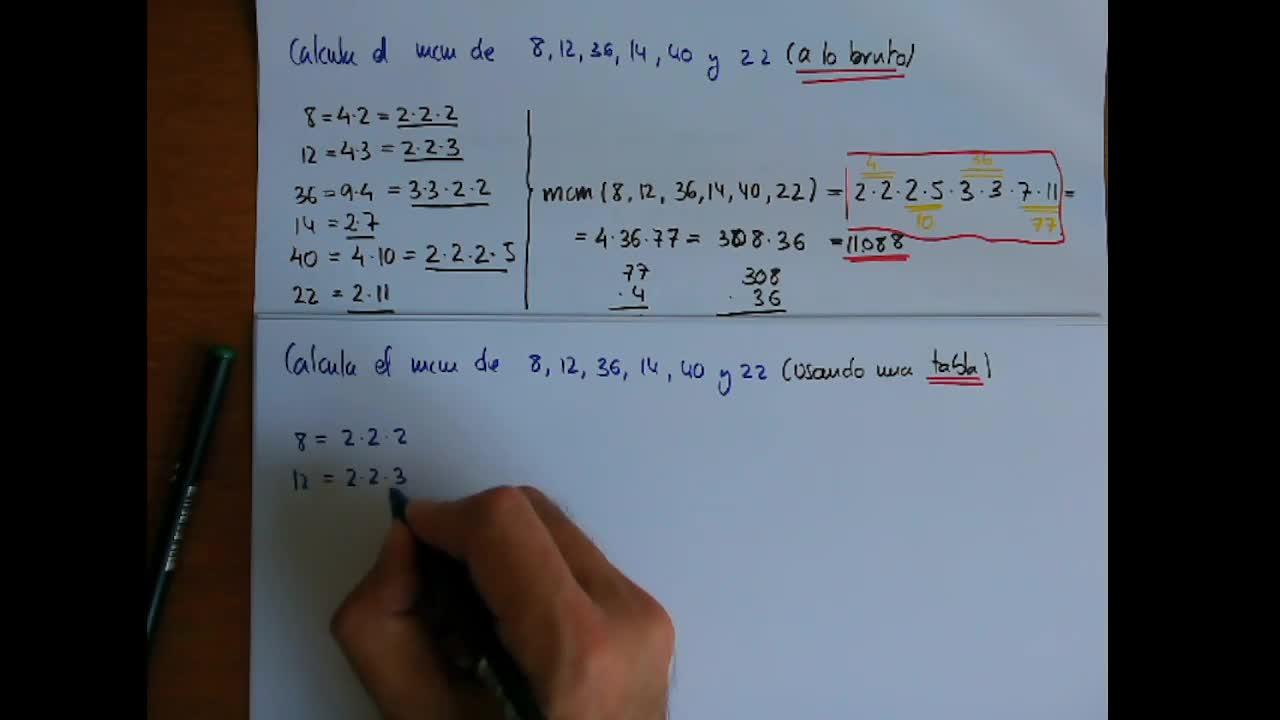 Calcula el mcm de 8, 12, 36, 14, 40 y 22 (a lo bruto)
8 = 4·2 = 2·2·2
12 = 4·3 = 2·2·3
36 = 9·4 = 3·3·2·2
14 = 2·7
40 = 4·10 = 2·2·2·5
22 = 2·11
4 36
mcm (8, 12, 36, 14, 40, 22) = 2·2·2·5·3·3·7·11 =
10 77
= 4·36·77 = 308·36 = 11088
77 308
·4 · 36
Calcula el mcm de 8, 12, 36, 14, 40 y 22 (usando una tabla)
8 = 2·2·2
12 = 2·2·3